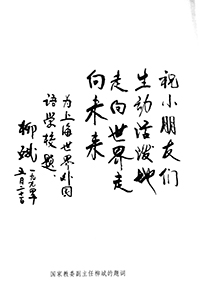 祝小朋友们
生动活泼地
走向世界走
向未来
为上海世界外国
语学校题
柳斌
一九九六年
五月二十六日
国家教委副主任柳斌的题词